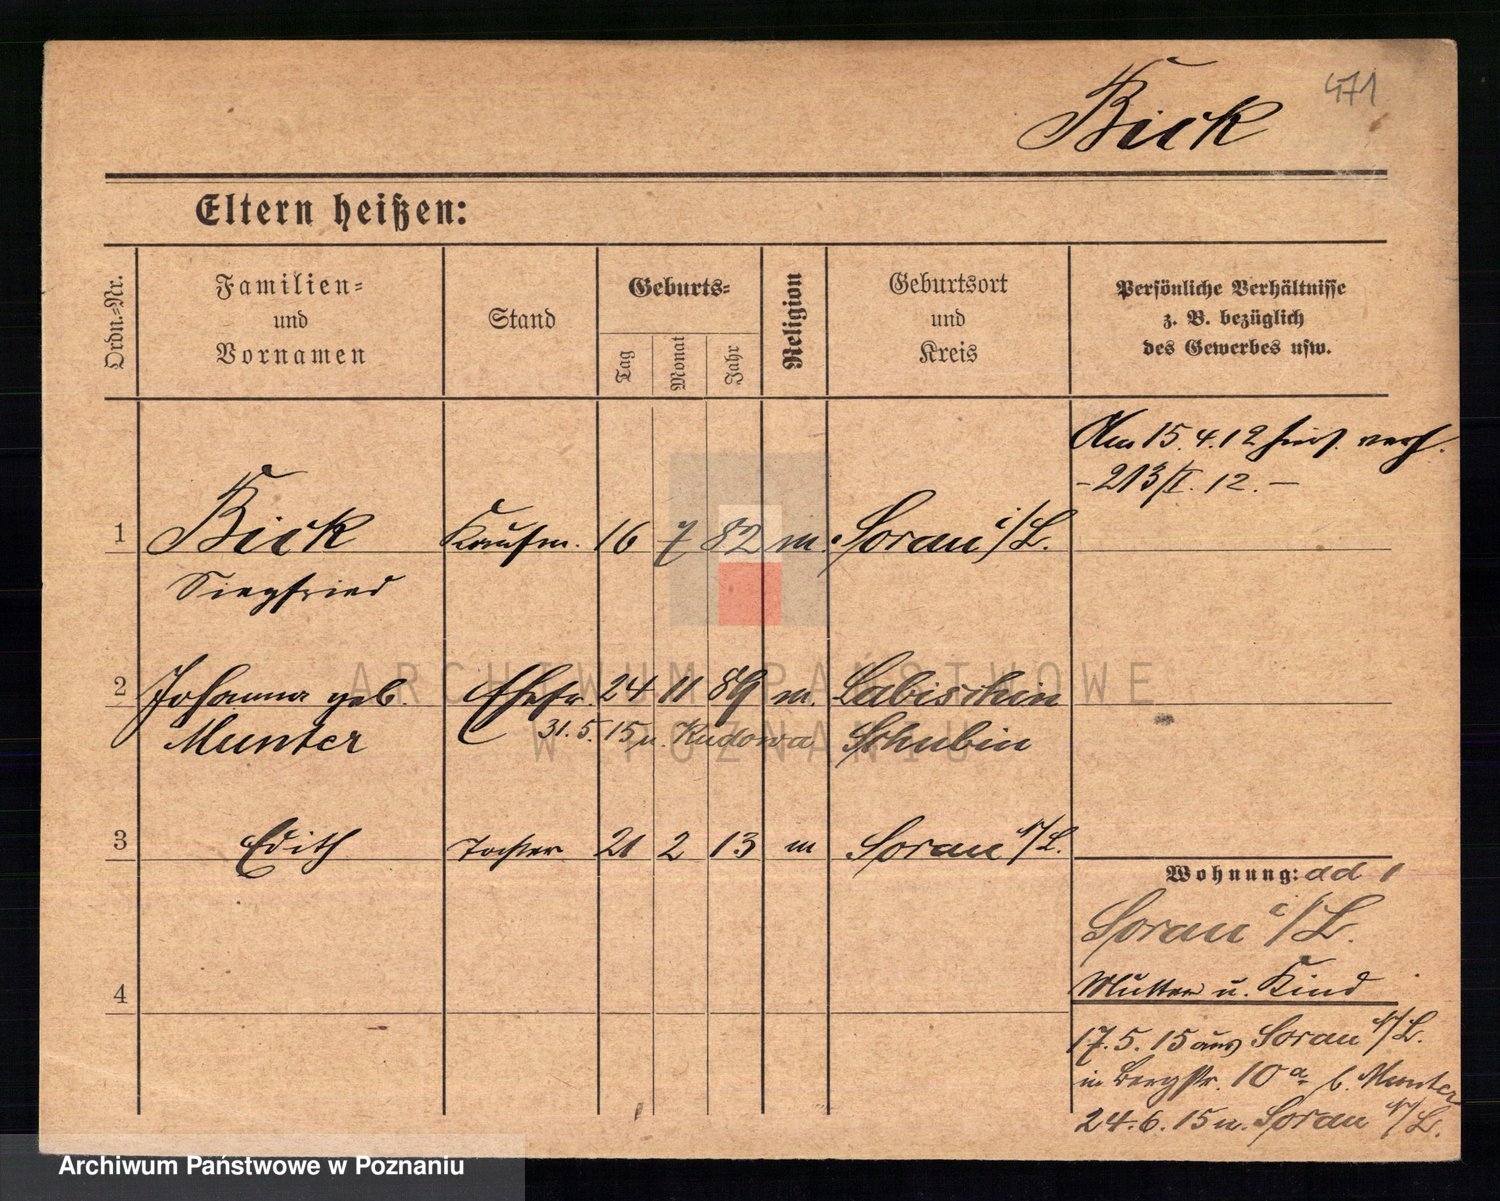 471
Bick
Eltern heißen:
Ordn.-Nr.
Familien-
und
Vornamen
Stand
Geburts-
Tag
Monat
Jahr
Religion
Geburtsort
und
Kreis
Persönliche Verhältnisse
z. B. bezüglich
des Gewerbes usw.
Am 15.4.12 hier verh.
-213/II. 12.-
1 Bick Kaufm. 16 7 82 m. Sorau i/L.
Siegfried
2 Johanna geb. Ehefr. 24 11 89 m. Labischin
Munter 31.5.15 n. Kudowa Schubin
3 Edith Tochter 21 2 13 m Sorau N/L.
Wohnung:
Sorau i/L.
4
Mutter u. Kind
17.5.15 aus Sorau N/L.
in Bergstr. 10a b. Munter
24.6.15 n. Sorau N/L.
ARCHIWUM PAŃSTWOWE
W POZNANIU
Archiwum Państwowe w Poznaniu